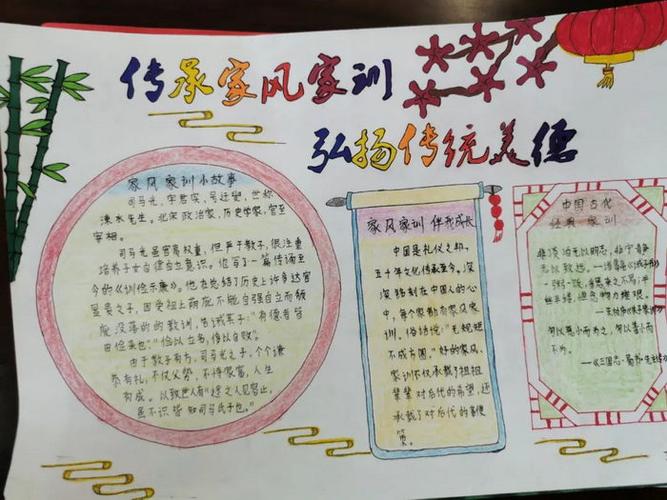 传承家风家训
弘扬传统美德
家风家训小故事
司马光,字君实,号迂叟,世称
涑水先生。北宋政治家,历史学家,官至
宰相。
司马光虽官高权重,但严于教子,很注重
培养子女自律自立意识。他写了一篇传诵至
今的《训俭示康》。他在总结了历史上许多达官
显贵之子,因受祖上荫庇不能自强自立而颓
废没落的的教训,告诫其子:“有德者皆
由俭来也”“俭以立名,侈以自败”。
由于教子有方,司马光之子,个个谦
恭有礼,不仗父势,不恃家富,人生
有成。以致世人有“途之人见容止,
虽不识皆知司马氏子也。”
家风家训 伴我成长
中国是礼仪之邦,
五千年文化传承至今。深
深镌刻在中国人的心
中,每个家都有家风家
训。俗话说:“无规矩
不成方圆”,好的家风,
家训不仅承载了祖祖
辈辈对后代的希望,还
承载了对后代的鞭
策。
中国古代
经典 家训
非淡泊无以明志,非宁静
无以致远。——诸葛亮《诫子书》
一粥一饭,当思来之不易;半
丝半缕,恒念物力维艰。
勿以恶小而为之,勿以善小而
不为。
——《三国志·蜀书·先主传》